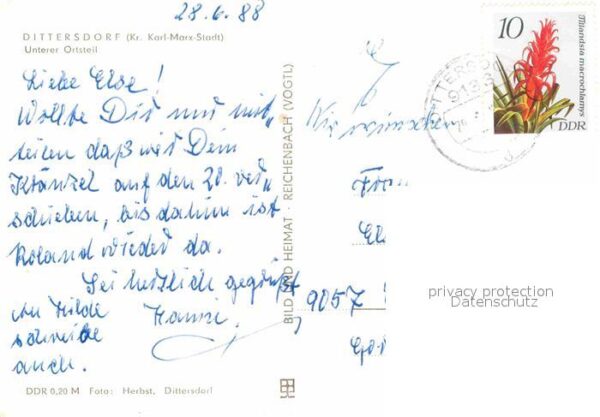 28.6.88
DITTERSDORF (Kr. Karl-Marx-Stadt)
Unterer Ortsteil
Liebe Else!
Wollte Dir nur mit„
teilen daß wir Dein
Kränzel auf den 28. ver„
schieben, bis dahin ist
Roland wieder da.
Sei herzlich gegrüßt
An Hilde Hanni.
schreibe
auch.
DDR 0,20 M Foto: Herbst, Dittersdorf
BILD UND HEIMAT · REICHENBACH (VOGTL)
10
Tillandsia macrochlamys
DDR
DITTERSDO
9057
privacy protection
Datenschutz